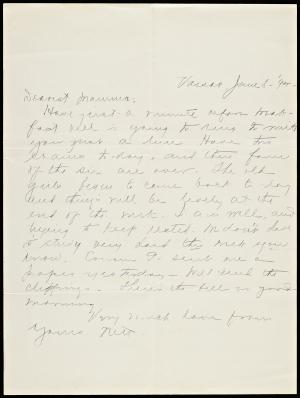 Vassar June 5 - '90 -
Dearest Mamma;
Have just a minute before break-
fast bell is going to ring to write
you just a line Have two
exams to-day, and then four
of the six are over. The old
girls begin to come back to day
and they'll all be here at the
end of the week. I am well, and
trying to keep rested. We don't have
to study very hard this week you
know. Cousin F. sent me a
paper yesterday - Will send the
clippings. There's the bell so good
morning
Very much love from
Yours Nett.